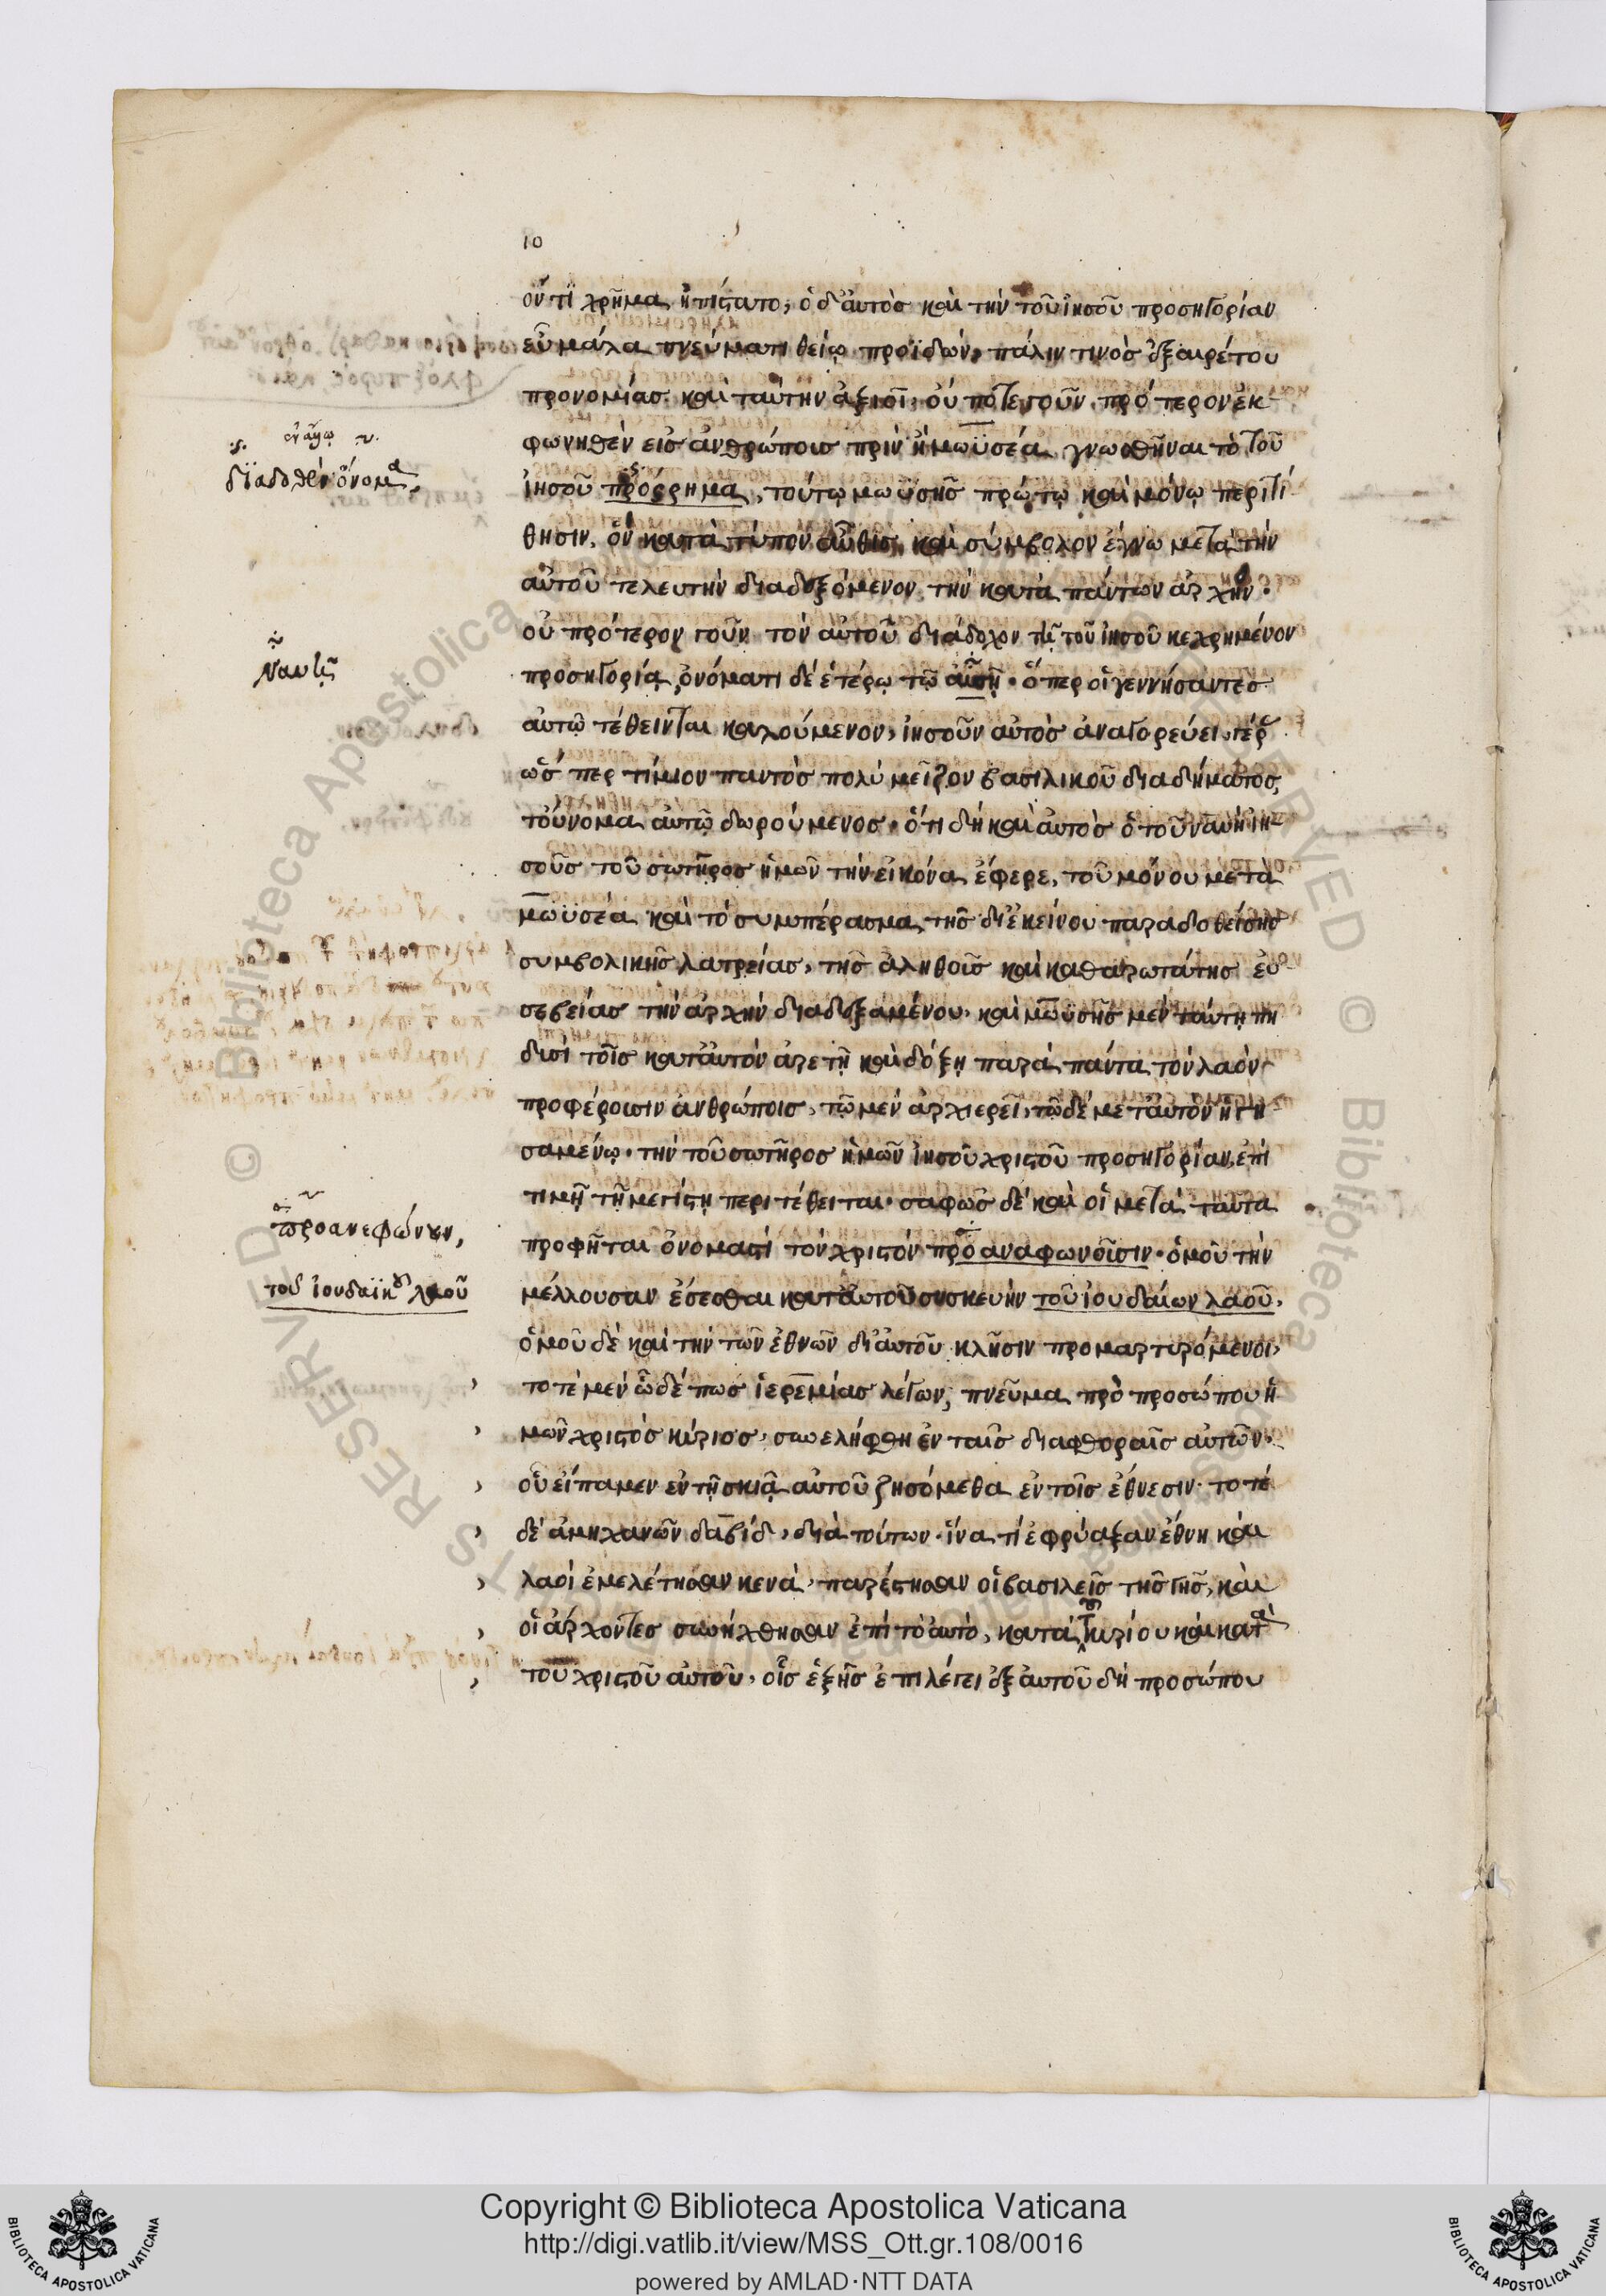 10
ον τι χρῆμα ἠπίστατο, ὁ δ' αὐτὸς καὶ τὴν τοῦ ἰησοῦ προσηγορίαν
εὖ μάλα πνεύματι θείῳ προϊδὼν, πάλιν τινὸς ἐξαιρέτου
προνομίας καὶ ταύτην ἀξιοῖ· οὔ ποτε γοῦν πρότερον ἐκ
φωνηθὲν εἰς ἀνθρώποις πρὶν ἢ μωϋσέα γνωσθῆναι τὸ τοῦ
διαδοθὲν ὄνομα,
ἰησοῦ πρόσρημα, τούτῳ μωϋσῆς πρώτῳ καὶ μόνῳ περιτί
θησιν, ὃν κατὰ τύπον αὖθις καὶ σύμβολον ἔγνω μετὰ τὴν
αὐτοῦ τελευτὴν διαδεξόμενον τὴν κατὰ πάντων ἀρχήν·
οὐ πρότερον γοῦν τὸν αὐτοῦ διάδοχον τῇ τοῦ ἰησοῦ κεχρημένον
προσηγορίᾳ, ὀνόματι δὲ ἑτέρῳ τῷ αὐσῆ· ὅπερ οἱ γεννήσαντες
αὐτῷ τέθεινται καλούμενον, ἰησοῦν αὐτὸς ἀναγορεύει, γέρας
ὥσπερ τίμιον παντὸς πολὺ μεῖζον βασιλικοῦ διαδήματος,
τοὔνομα αὐτῷ δωρούμενος· ὅτι δὴ καὶ αὐτὸς ὁ τοῦ ναυῆ ἰη
σοῦς τοῦ σωτῆρος ἡμῶν τὴν εἰκόνα ἔφερε, τοῦ μόνου μετὰ
μωϋσέα καὶ τὸ συμπέρασμα τῆς δι' ἐκείνου παραδοθείσης
συμβολικῆς λατρείας, τῆς ἀληθοῦς καὶ καθαρωτάτης εὐ
σεβείας τὴν ἀρχὴν διαδεξαμένου· καὶ μωϋσῆς μὲν ταύτῃ πη
δυσὶ τοῖς κατ' αὐτὸν ἀρετῇ καὶ δόξῃ παρὰ πάντα τὸν λαὸν
προφέρουσιν ἀνθρώποις, τῷ μὲν ἀρχιερεῖ, τῷ δὲ μετ' αὐτὸν ἡγη
σαμένῳ· τὴν τοῦ σωτῆρος ἡμῶν ἰησοῦ χριστοῦ προσηγορίαν, ἐπὶ
τιμῇ τῇ μεγίστῃ περιτέθειται· σαφῶς δὲ καὶ οἱ μετὰ ταῦτα
προανεφώνουν,
προφῆται ὀνομαστὶ τὸν χριστὸν προαναφωνοῦσιν· ὁμοῦ τὴν
τοῦ ἰουδαϊκοῦ λαοῦ
μέλλουσαν ἔσεσθαι κατ' αὐτοῦ συσκευὴν τοῦ ἰουδαίων λαοῦ,
ὁμοῦ δὲ καὶ τὴν τῶν ἐθνῶν δι' αὐτοῦ κλῆσιν προμαρτυρόμενοι,
τοτὲ μὲν ὧδέ πως ἱερεμίας λέγων, πνεῦμα πρὸ προσώπου ἡ
μῶν χριστὸς κύριος, συνελήφθη ἐν ταῖς διαφθοραῖς αὐτῶν·
οὗ εἴπαμεν ἐν τῇ σκιᾷ αὐτοῦ ζησόμεθα ἐν τοῖς ἔθνεσιν· τοτὲ
δὲ ἀμηχανῶν δαβίδ, διὰ τούτων· ἵνα τί ἐφρύαξαν ἔθνη καὶ
λαοὶ ἐμελέτησαν κενά, παρέστησαν οἱ βασιλεῖς τῆς γῆς, καὶ
οἱ ἄρχοντες συνήχθησαν ἐπὶ τὸ αὐτὸ, κατὰ τοῦ κυρίου καὶ κατὰ
τοῦ χριστοῦ αὐτοῦ, οἷς ἑξῆς ἐπιλέγει ἐξ αὐτοῦ δὴ προσώπου
Copyright © Biblioteca Apostolica Vaticana
http://digi.vatlib.it/view/MSS_Ott.gr.108/0016
powered by AMLAD·NTT DATA
BIBLIOTECA APOSTOLICA VATICANA
BIBLIOTECA APOSTOLICA VATICANA